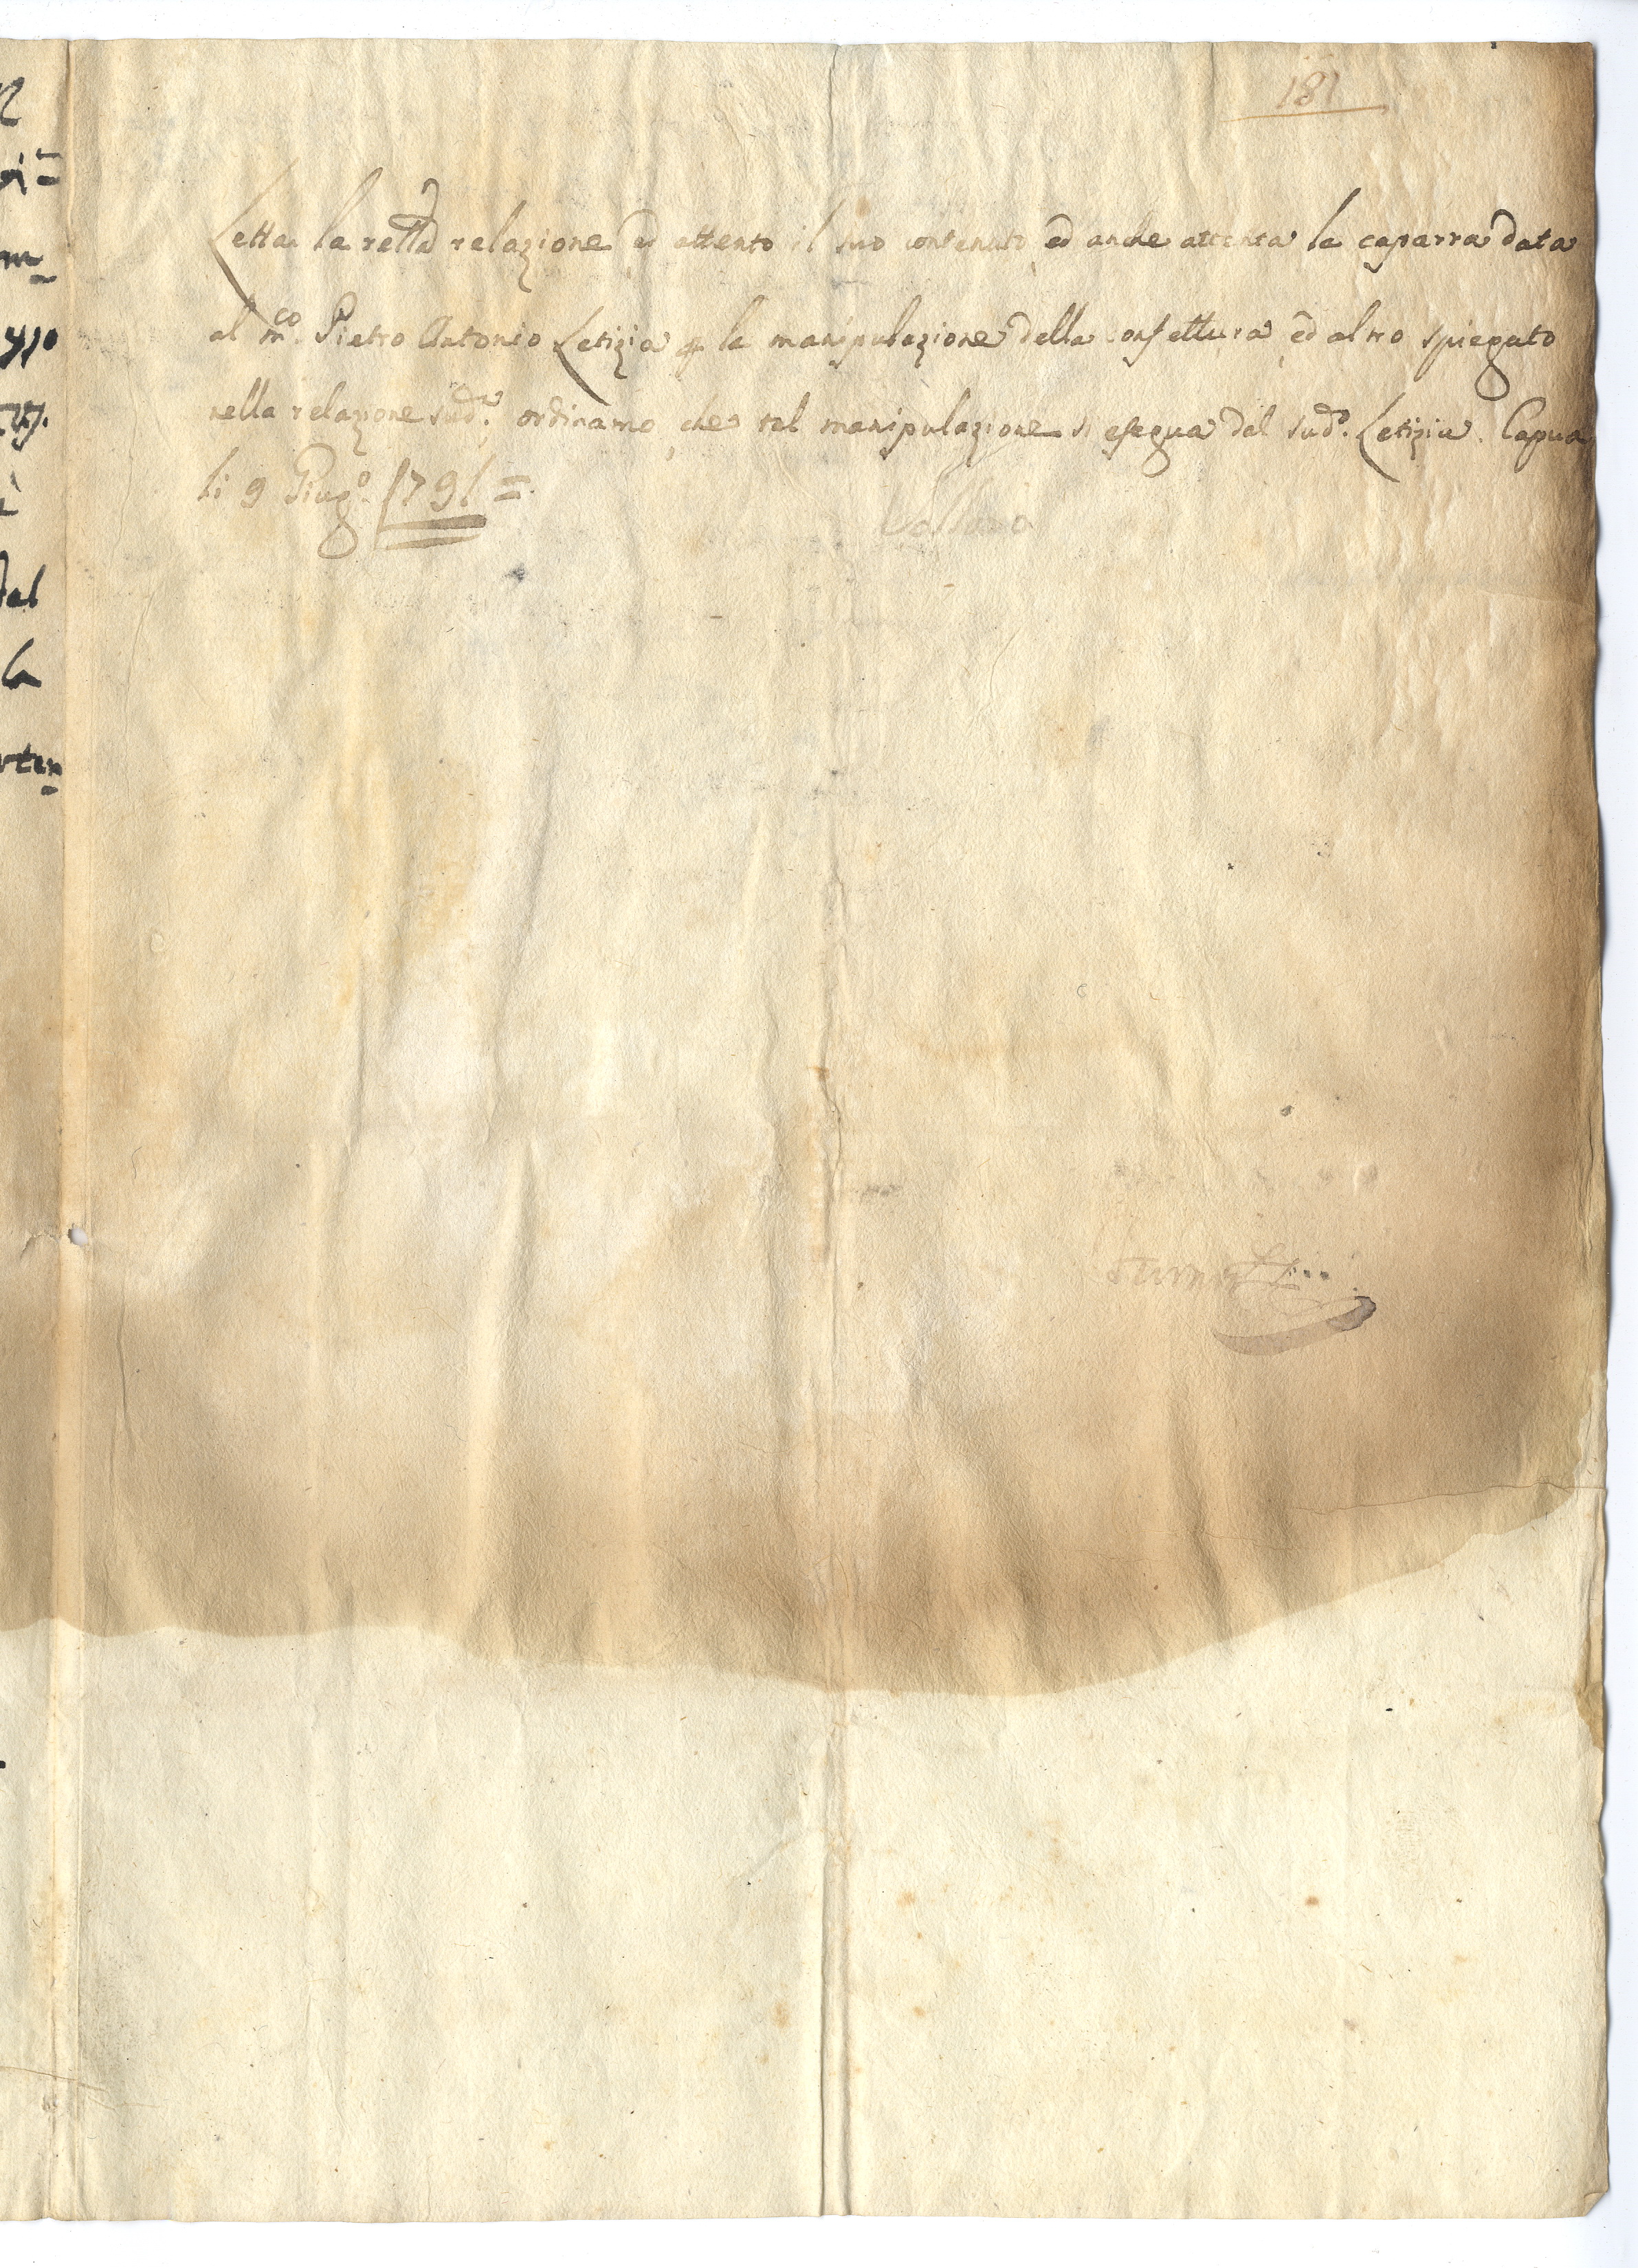 181
Letta la rettã relazione, ed attento il suo contenuto, ed anche attenta la caparra data
al m.co Pietro Antonio Letizia p la manipulazione della confettura, ed altro spiegato
nella relazione sud.a; ordinamo, che tal manipulazione si esegua dal sud.o Letizia. Capua
li 9 Giug.o 1791 =
al
la